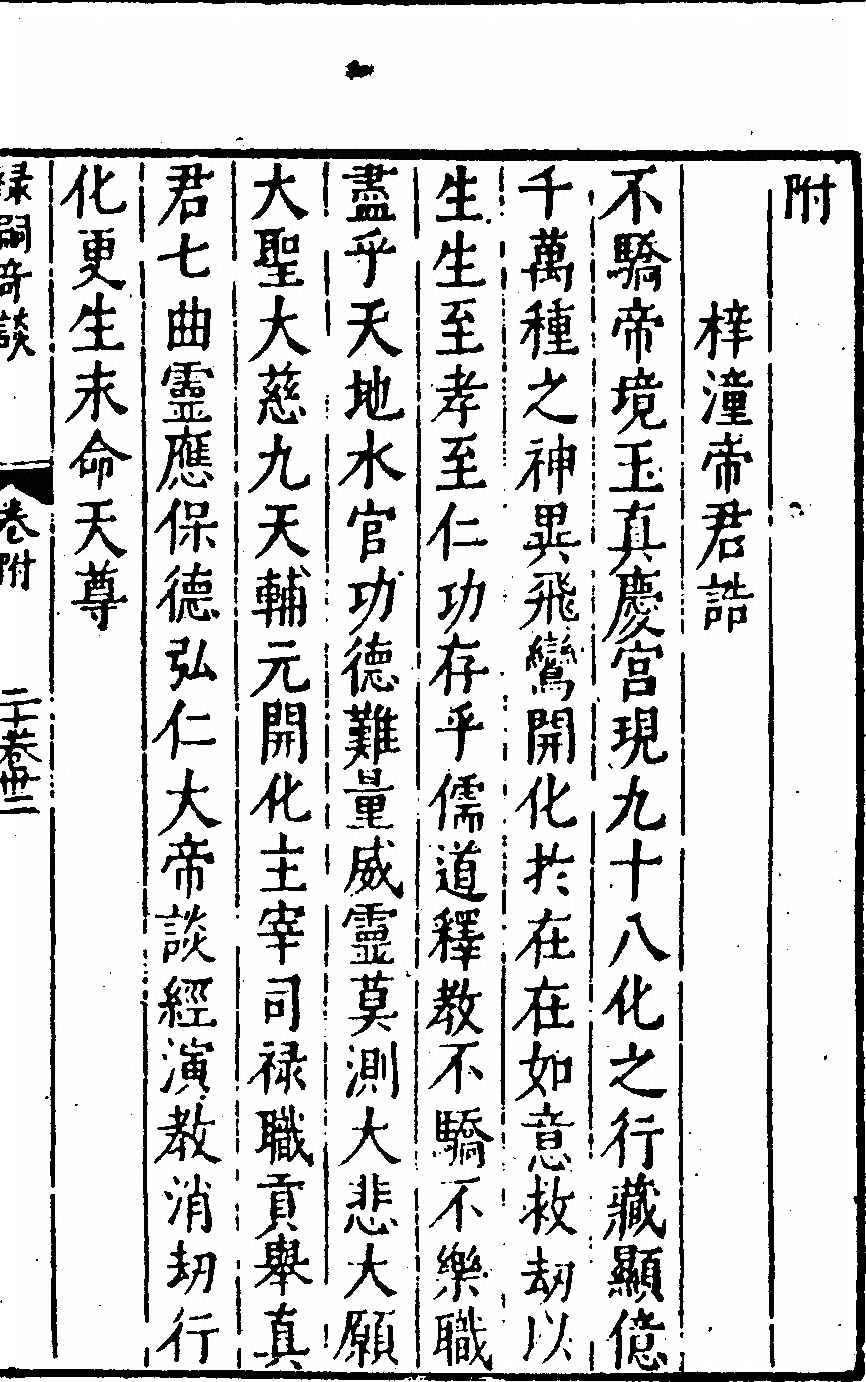 附
梓潼帝君誥
不驕帝境玉真慶宮現九十八化之行藏顯億
千萬種之神異飛鸞開化扵在在如意救劫以
生生至孝至仁功存乎儒道釋教不驕不樂職
盡乎天地水官功德難量威靈莫測大悲大願
大聖大慈九天輔元開化主宰司禄職貢舉真
君七曲靈應保德弘仁大帝談經演教消劫行
化更生末命天尊
嗣奇談 卷附